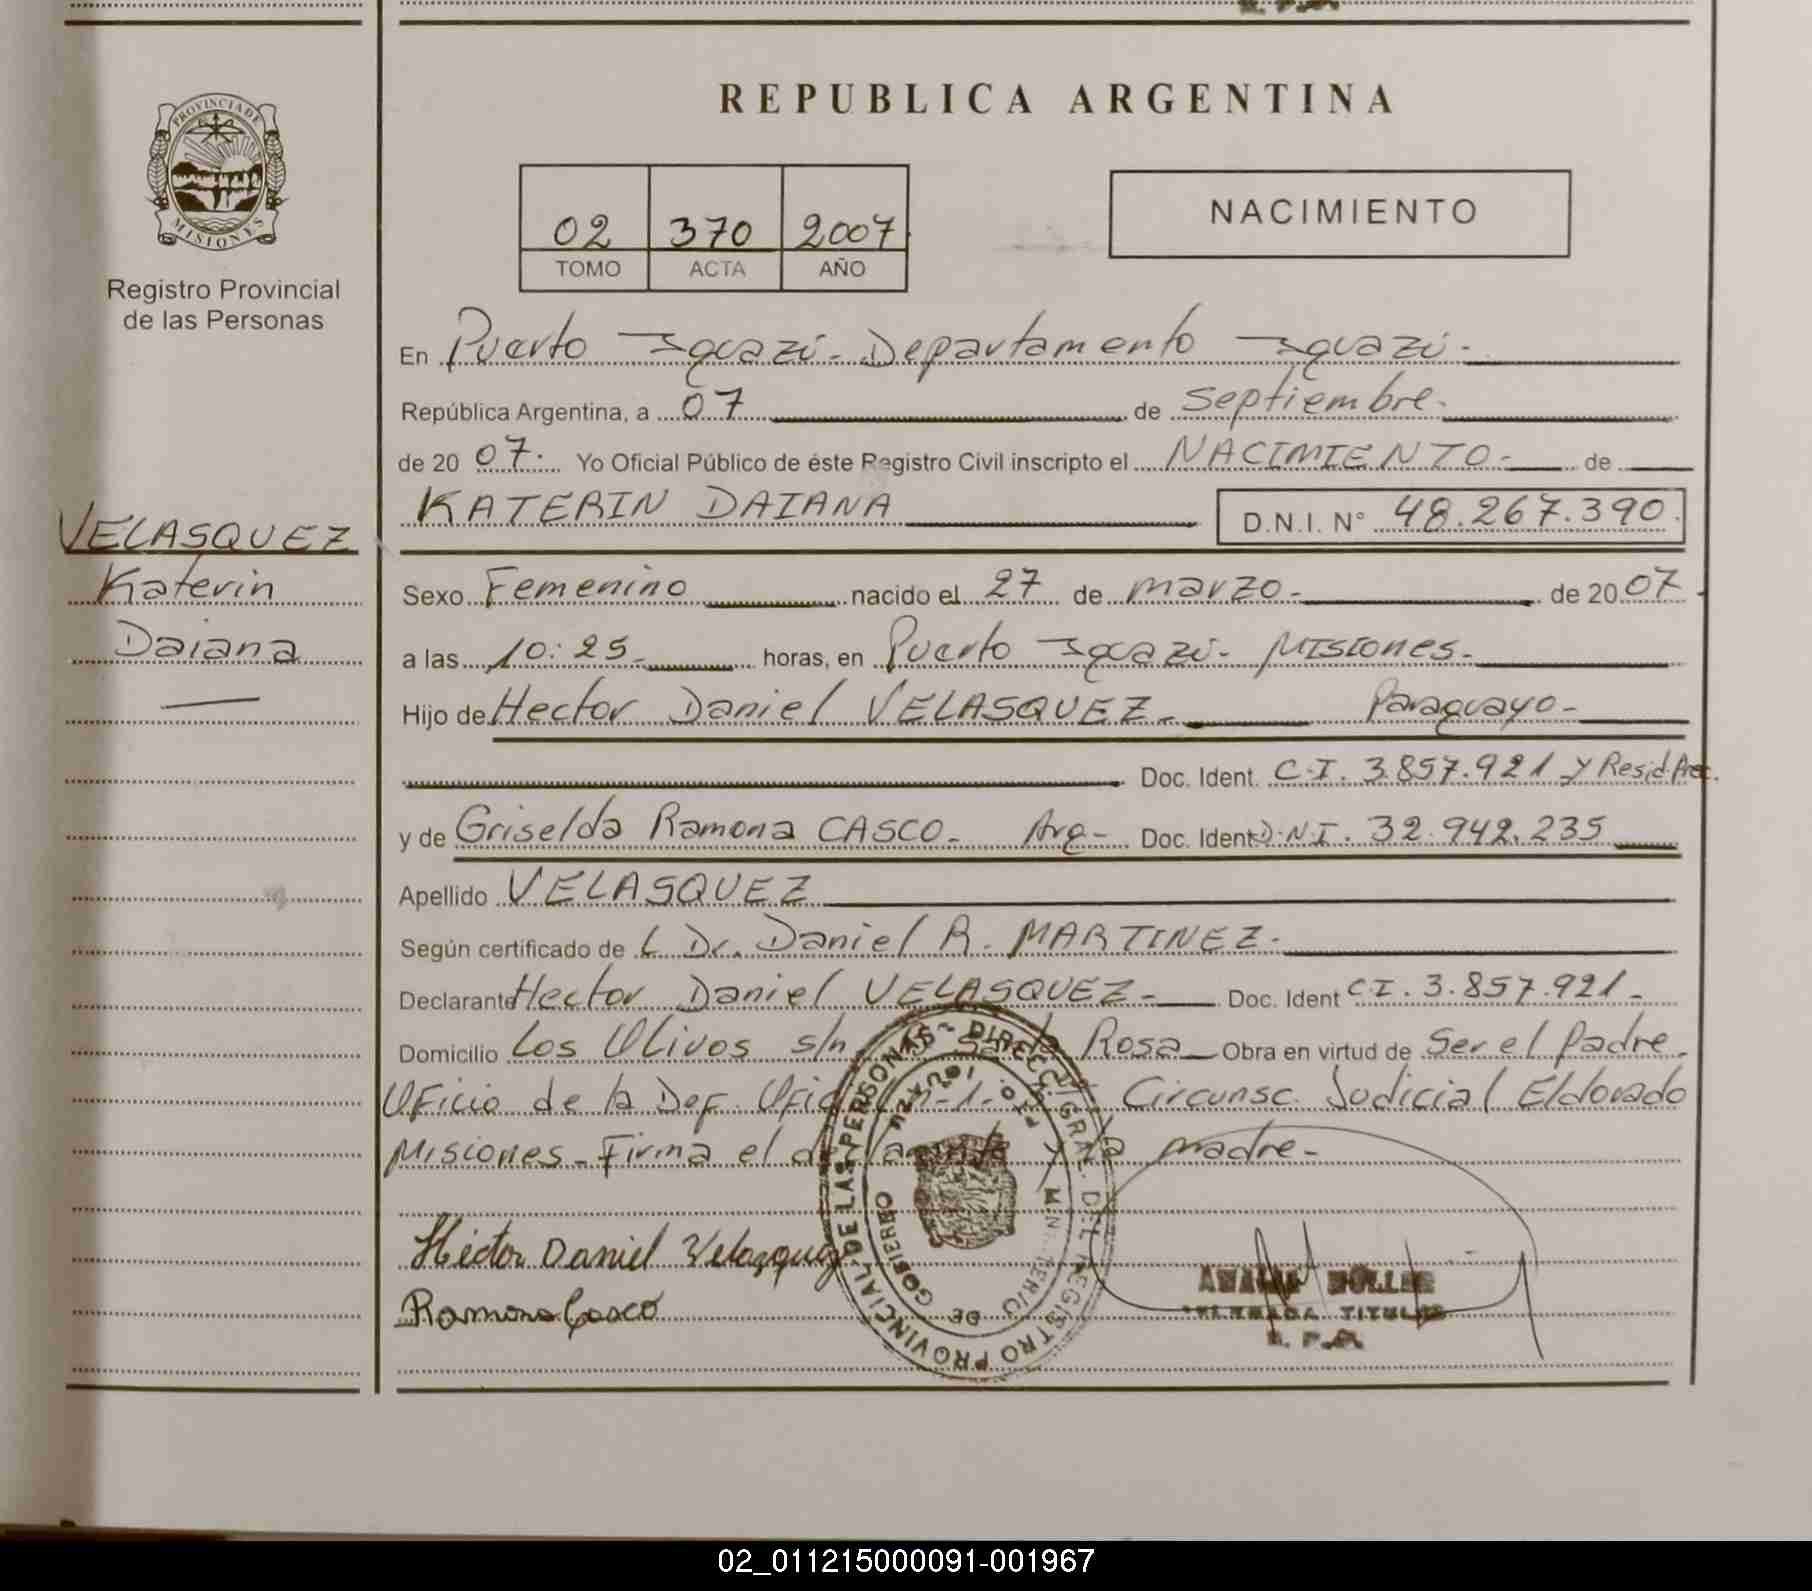 PROVINCIA DE
MISIONES
Registro Provincial
de las Personas
VELASQUEZ
Katerin
Daiana
REPUBLICA ARGENTINA
02 370 2007
TOMO ACTA AÑO
NACIMIENTO
En Puerto Iguazú - Departamento Iguazú -
República Argentina, a 07 de septiembre -
de 20 07. Yo Oficial Público de éste Registro Civil inscripto el NACIMIENTO - de
KATERIN DAIANA D.N.I. N° 48.267.390.
Sexo Femenino nacido el 27 de marzo - de 20 07
a las 10:25 - horas, en Puerto Iguazú - Misiones -
Hijo de Hector Daniel VELASQUEZ - Paraguayo -
Doc. Ident. C.I. 3.857.921 y Resid. Prec.
y de Griselda Ramona CASCO - Arg - Doc. Ident D.N.I. 32.942.235
Apellido VELASQUEZ
Según certificado de L Dr. Daniel R. MARTINEZ -
Declarante Hector Daniel VELASQUEZ - Doc. Ident C.I. 3.857.921 -
Domicilio Los Olivos s/n Santa Rosa Obra en virtud de Ser el Padre -
Oficio de la Def. Ofic Circunsc. Judicial Eldorado
Misiones - Firma el declarante y la madre -
Héctor Daniel Velazquez
Ramona Casco
DIRECC. GRAL. DEL REGISTRO PROVINCIAL DE LAS PERSONAS
MINISTERIO DE GOBIERNO
PTO. IGUAZU
TITULAR
R. P. P.
02_011215000091-001967